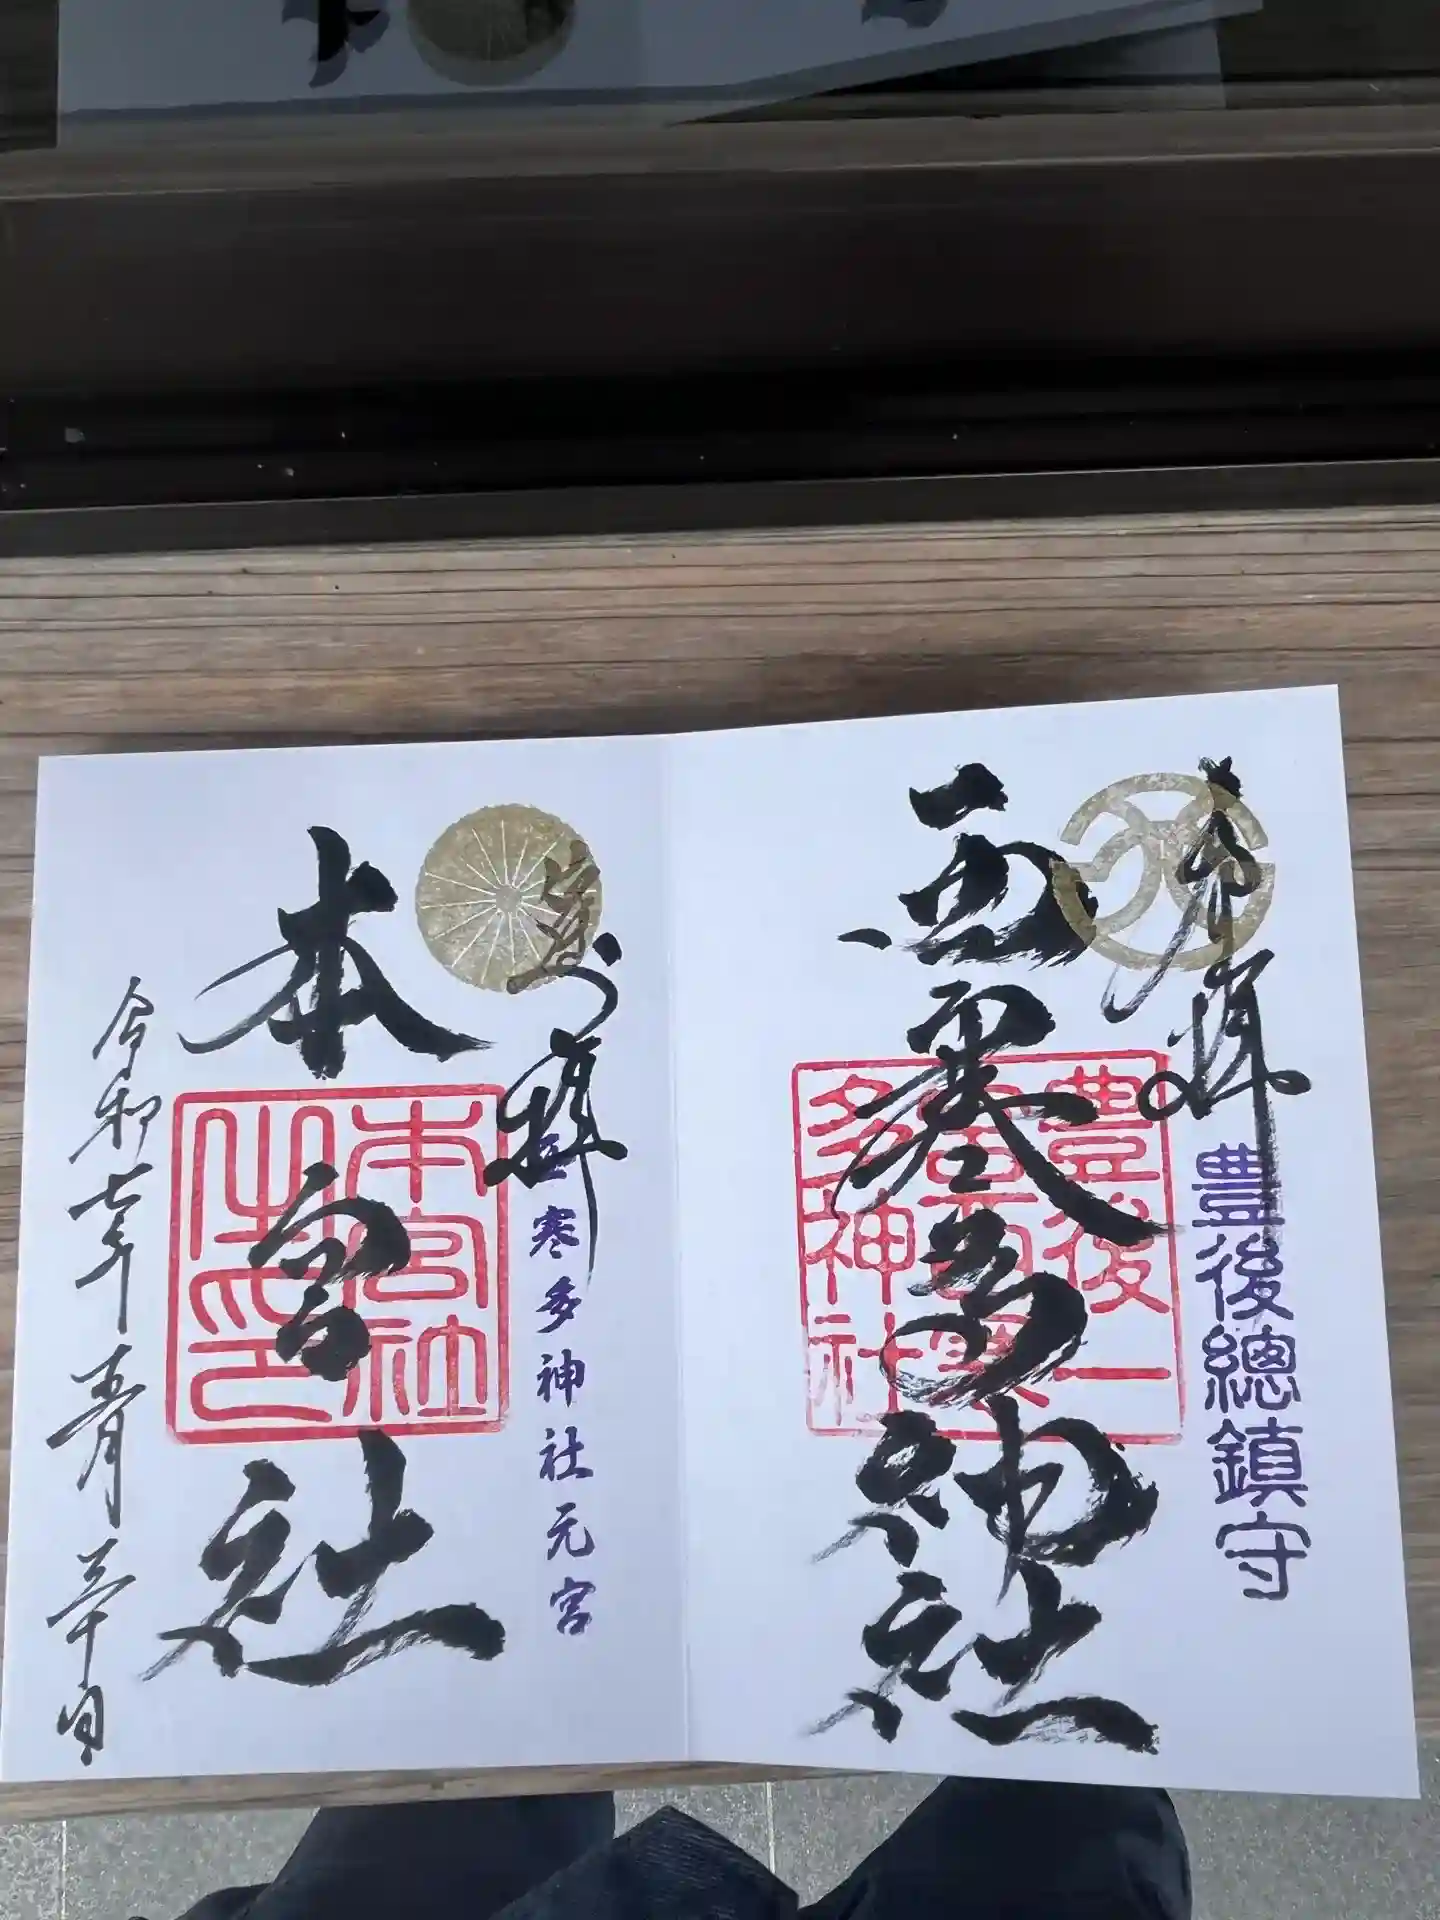 奉拝
豊後總鎮守
西寒多神社
豊後一
宮西寒
多神社
拝
西寒多神社元宮
本宮社
本宮社
之印
令和七年五月三十日